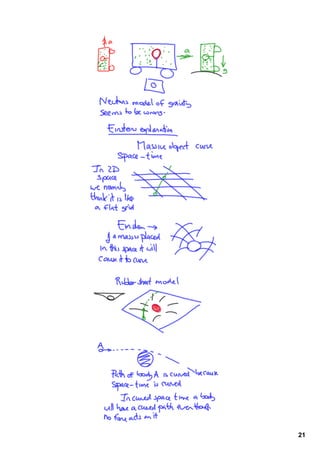 a
a
g
Newtons model of gravity
seems to be wrong.
Einstein explanation
Massive object curve
Space-time
In 2D
space
we normaly
think it is like
a flat grid
Einstein →
if a mass is placed
in this space it will
cause it to curve
Rubber sheet model
A
Path of body A is curved because
Space-time is curved
In curved space time a body
will have a curved path even though
no force acts on it
21